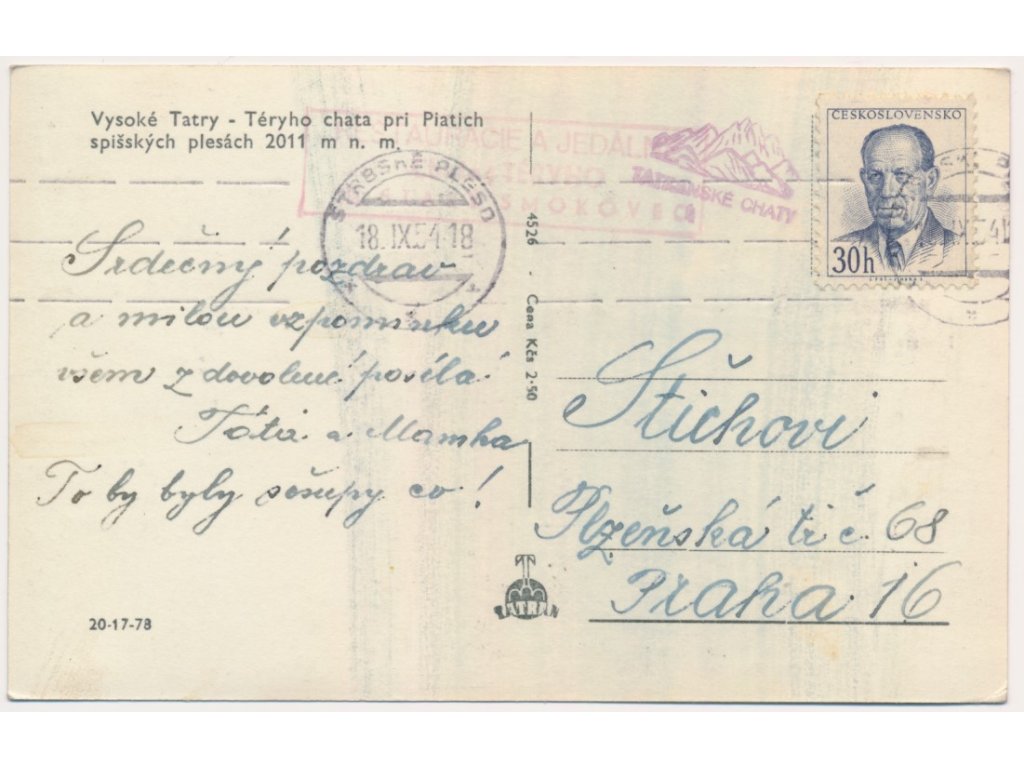 Vysoké Tatry - Téryho chata pri Piatich
spišských plesách 2011 m n. m.
REŠTAURÁCIE A JEDÁLN
TERYHO
SMOKOVEC
TATRANSKÉ CHATY
ŠTRBSKÉ PLESO
18.IX.54.18
ČESKOSLOVENSKO
30h
IX.54.18
Srdečný pozdrav
a milou vzpomínku
všem z dovolené posílá
Táta a Mamka
To by byly sešupy co!
4526 - Cena Kčs 2·50
Štichovi
Plzeňská tř č 68
Praha 16
TATRAN
20-17-78